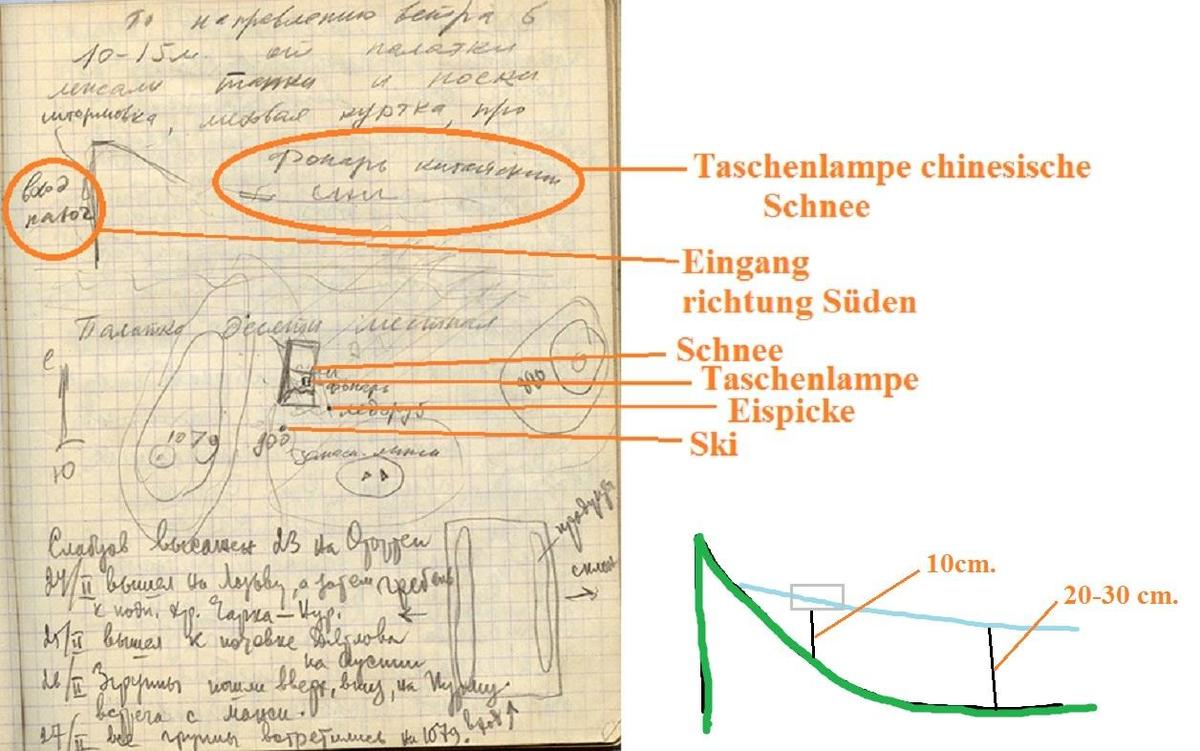 По направлению ветра в
10-15м. от палатки
лежали тапки и носки
штормовка, меховая куртка, про
фонарь китайский
снег
вход
палат
Taschenlampe chinesische
Schnee
Eingang
richtung Süden
Палатка десяти местная
С
Ю
фонарь
ледоруб
1079
900
880
Schnee
Taschenlampe
Eispicke
Ski
Слабцов высажен 23 на Отортен
24/II вышел на Лозьву, а затем гребень
к
25/II вышел к ночевке Дятлова
на Ауспии
26/II 3 группы пошли вверх, вниз, на
встреча с манси.
27/II все группы встретились на 1079.
вход
склон
10cm.
20-30 cm.